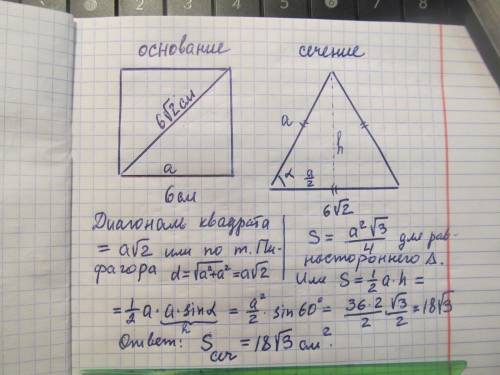 основание
сечение
6√2 см
a
6 см
a
h
α
a/2
6√2
Диагональ квадрата
= a√2 или по т. Пи-
фагора d=√a²+a²=a√2
S = a²√3/4 для рав-
ностороннего Δ.
Или S=1/2 a·h =
=1/2 a·a·sinα = a²/2 · sin60° = 36·2/2 · √3/2 = 18√3
h
Ответ: Sсеч = 18√3 см².